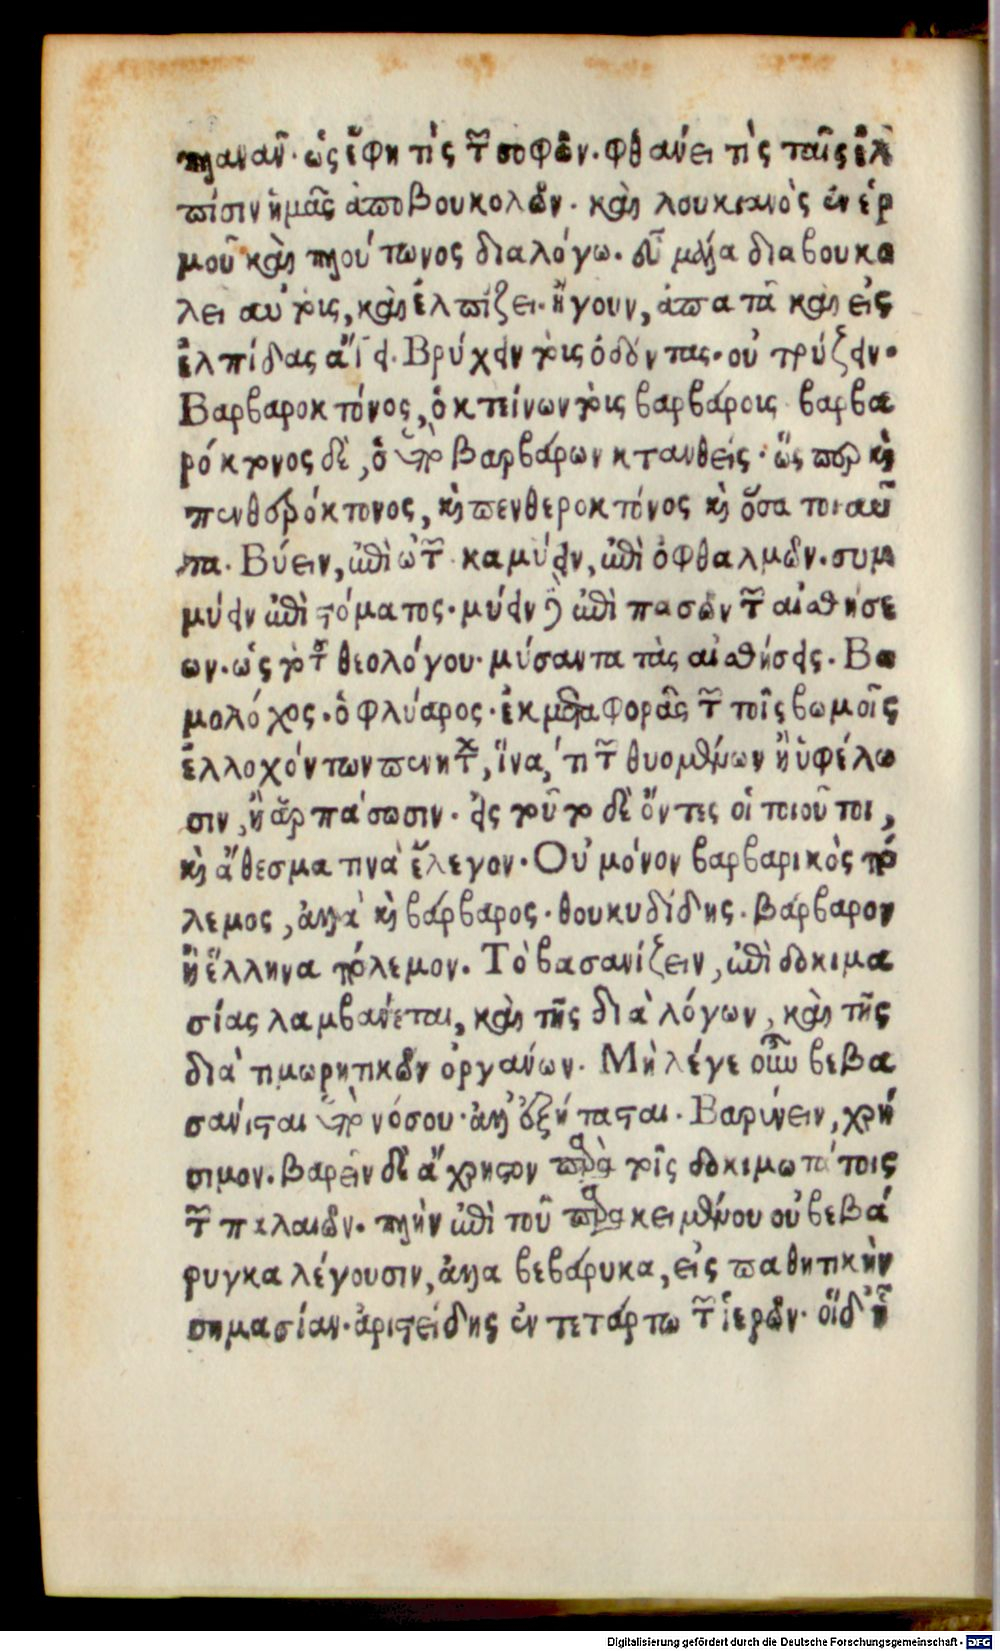 πλανᾶν· ὡς ἔφη τὶς τῶν σοφῶν. φθάνει τὶς ταῖς ἐλ
πίσιν ἡμᾶς ἀποβουκολῶν. καὶ λουκιανὸς ἐν ἑρ
μοῦ καὶ πλούτωνος διαλόγω. εὖ μάλα διαβουκο
λεῖ αὐτοὺς, καὶ ἐλπίζει. ἤγουν, ἀπατᾶ καὶ εἰς
ἐλπίδας ἄγει. Βρύχειν τοὺς ὀδόντας. οὐ τρύζειν.
Βαρβαροκτόνος, ὁ κτείνων τοὺς βαρβάρους βαρβα
ρόκτονος δὲ, ὁ ὑπὸ βαρβάρων κτανθείς. ὥσπερ καὶ
πενθερόκτονος, καὶ πενθεροκτόνος καὶ ὅσα τοιαῦ
τα. Βύειν, ἐπὶ ὤτων καμύειν, ἐπὶ ὀφθαλμῶν. συμ
μύειν ἐπὶ στόματος. μύειν δὲ ἐπὶ πασῶν τῶν αἰσθήσε
ων. ὡς τὸ τοῦ θεολόγου. μύσαντα τὰς αἰσθήσεις. Βω
μολόχος. ὁ φλύαρος. ἐκ μεταφορᾶς τῶν τοῖς βωμοῖς
ἐλλοχόντων πτωχῶν, ἵνα, τὶ τῶν θυομένων ἢ ὑφέλω
σιν, ἢ ἁρπάσωσιν. εἰς τοῦτο δὲ ὄντες οἱ τοιοῦτοι,
καὶ ἄθεσμα τινὰ ἔλεγον. Οὐ μόνον βαρβαρικὸς πό
λεμος, ἀλλὰ καὶ βάρβαρος. θουκυδίδης. βάρβαρον
ἢ ἕλληνα πόλεμον. Τὸ βασανίζειν, ἐπὶ δοκιμα
σίας λαμβάνεται, καὶ τῆς διὰ λόγων, καὶ τῆς
διὰ τιμωρητικῶν ὀργάνων. Μὴ λέγε οὖν βεβα
σάνισται ὑπὸ νόσου. ἀλλ' ἐξήτασται. Βαρύνειν, χρή
σιμον. βαρεῖν δὲ ἄχρηστον παρὰ τοῖς δοκιμωτάτοις
τῶν παλαιῶν. πλὴν ἐπὶ τοῦ παρακειμένου οὐ βεβά
ρυγκα λέγουσιν, ἀλλὰ βεβάρυκα, εἰς παθητικὴν
σημασίαν. ἀριστείδης ἐν τετάρτω τῶν ἱερῶν.
Digitalisierung gefördert durch die Deutsche Forschungsgemeinschaft · DFG